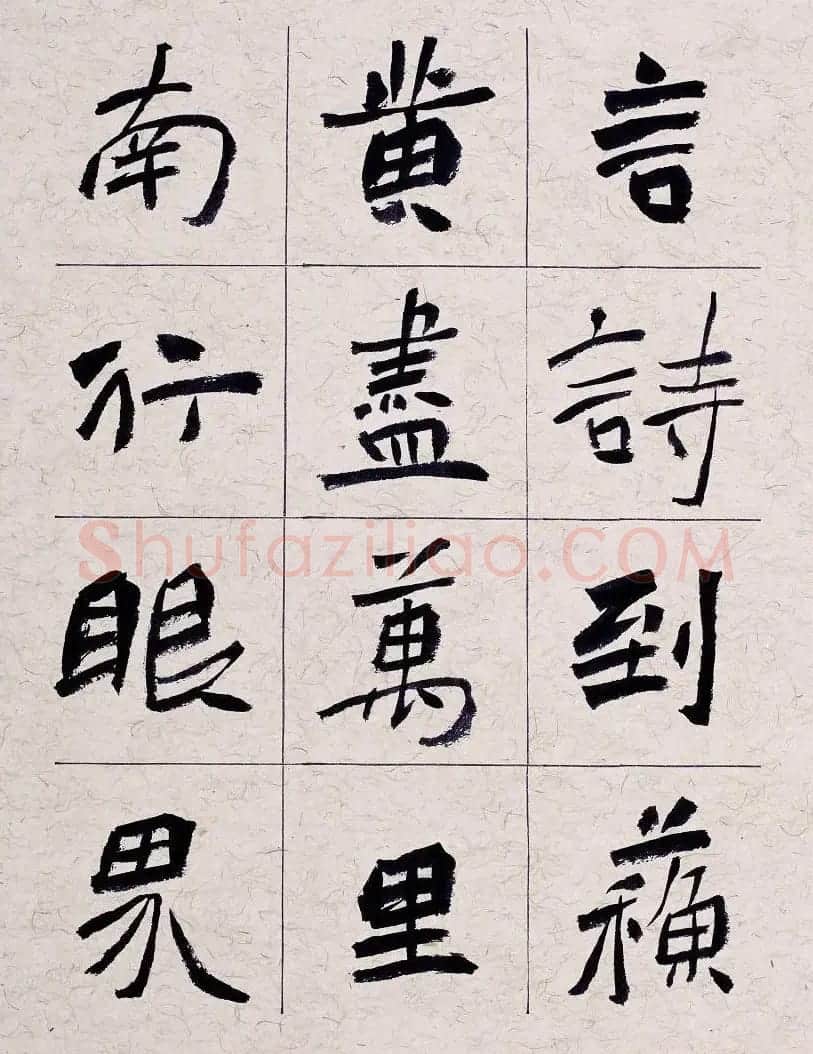 言詩到蘇
黄盡萬里
南行眼界
Shufaziliao.COM